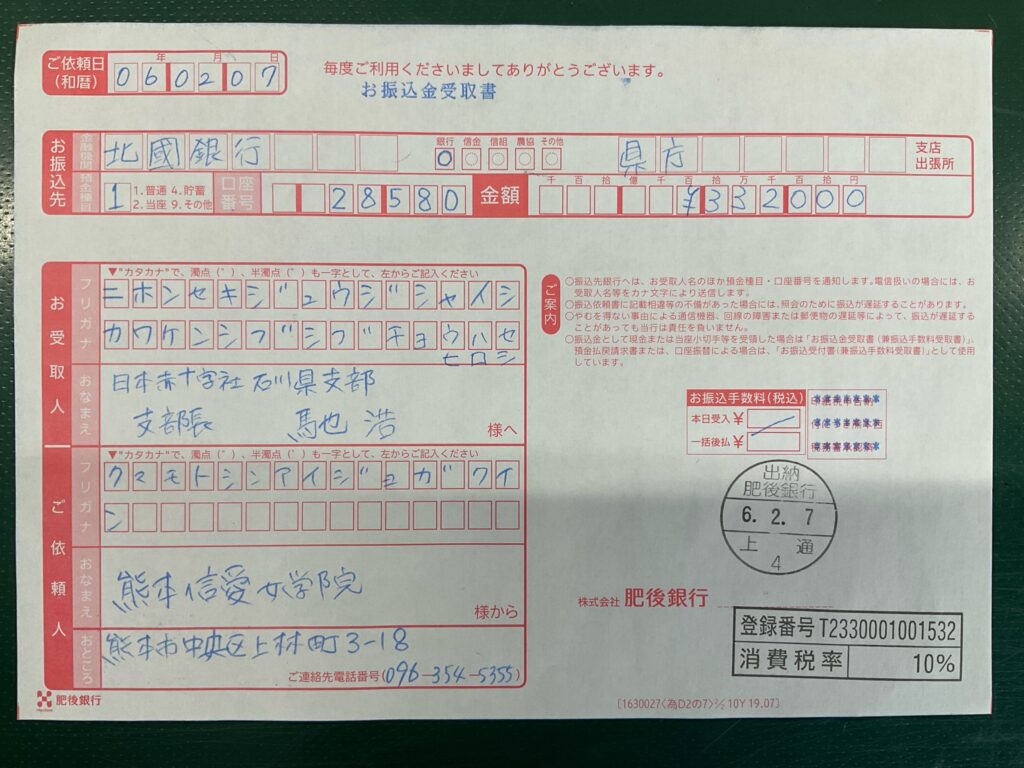 ご依頼日
(和暦)
年 月 日
060207
毎度ご利用くださいましてありがとうございます。
お振込金受取書
お振込先
金融機関
北國銀行
銀行 信金 信組 農協 その他
県庁
支店
出張所
預金種目
1
1. 普通 4. 貯蓄
2. 当座 9. その他
口座番号
28580
金額
千百拾億千百拾万千百拾円
¥332000
お受取人
フリガナ
▼"カタカナ"で、濁点(゛)、半濁点(゜)も一字として、左からご記入ください
ニホンセキジュウジシャイシ
カワケンシブシブチョウハセ
ヒロシ
おなまえ
日本赤十字社 石川県支部
支部長 馳 浩
様へ
ご依頼人
フリガナ
▼"カタカナ"で、濁点(゛)、半濁点(゜)も一字として、左からご記入ください
クマモトシンアイジョガクイ
ン
おなまえ
熊本信愛女学院
様から
おところ
熊本市中央区上林町3-18
ご連絡先電話番号(096-354-5355)
肥後銀行
ご案内
○振込先銀行へは、お受取人名のほか預金種目・口座番号を通知します。電信扱いの場合には、お
受取人名等をカナ文字により送信します。
○振込依頼書に記載相違等の不備があった場合には、照会のために振込が遅延することがあります。
○やむを得ない事由による通信機器、回線の障害または郵便物の遅延等によって、振込が遅延する
ことがあっても当行は責任を負いません。
○振込金として現金または当座小切手等を受領した場合は「お振込金受取書(兼振込手数料受取書)」、
預金払戻請求書または、口座振替による場合は、「お振込受付書(兼振込手数料受取書)」として使用
しています。
お振込手数料(税込)
本日受入 ¥
一括後払 ¥
出納
肥後銀行
6. 2. 7
上 通
4
株式会社 肥後銀行
登録番号 T2330001001532
消費税率 10%